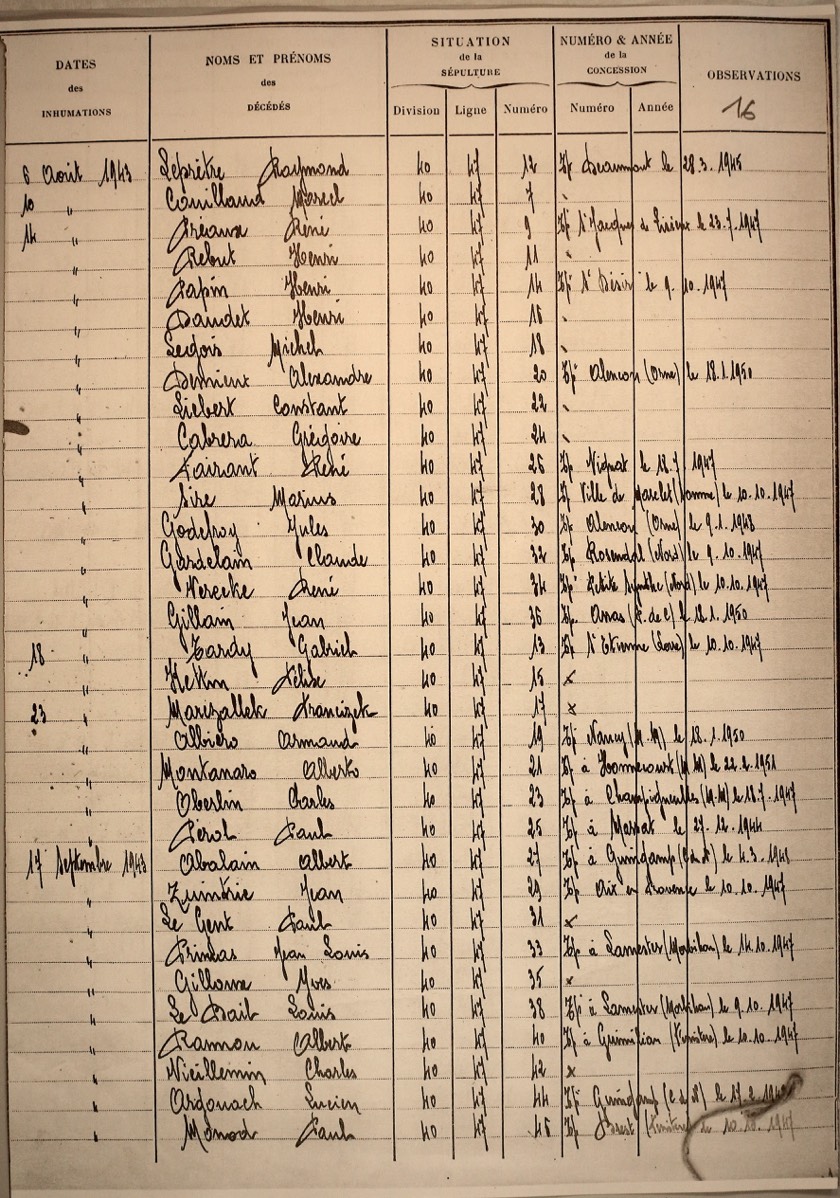 DATES des INHUMATIONS
NOMS ET PRÉNOMS des DÉCÉDÉS
SITUATION de la SÉPULTURE
NUMÉRO & ANNÉE de la CONCESSION
OBSERVATIONS
16
Division Ligne Numéro Numéro Année
6 Août 1943 Leprêtre Raymond 40 47 12 Tp Beaumont le 28.3.1945
10 " Couillaud Marcel 40 47 7
14 " Préaux René 40 47 9 Tp St Jacques de Lisieux le 23.7.1947
" Rebut Henri 40 47 11
" Papin Henri 40 47 14 Tp St Désir le 9.10.1947
" Daudet Henri 40 47 16
" Michel 40 47 18
" Alexandre 40 47 20 Tp Alençon (Orne) le 18.1.1950
" Liebert Constant 40 47 22
" Cabrera Grégoire 40 47 24
" René 40 47 26 Tp le 18.7 1947
" Sire Marius 40 47 28 Tp Ville de (Somme) le 10.10.1947
" Godefroy Jules 40 47 30 Tp Alençon (Orne) le 9.1.1948
" Gardelain Claude 40 47 32 Tp Rosendal (Nord) le 9.10.1947
" René 40 47 34 Tp Petite Synthe (Nord) le 10.10.1947
" Gillain Jean 40 47 36 Tp. (P. de C) le 18.1.1950
18 " Tardy Gabriel 40 47 13 Tp St Etienne (Loire) le 10.10.1947
" 40 47 15 x
23 " Marczallek Francizek 40 47 17 x
" Albiero Armand 40 47 19 Tp Nancy (M.M) le 18.1.1950
" Montanaro Alberto 40 47 21 Tp à Homécourt (M.M) le 22.2.1951
" Oberlin Charles 40 47 23 Tp à Champigneulles (M.M) le 18.7.1947
" Pérol Paul 40 47 25 Tp à Massat le 27.12.1944
17 Septembre 1943 Abalain Albert 40 47 27 Tp à Guingamp (C du N) le 4.3.1948
" Jean 40 47 29 Tp Aix en Provence le 10.10.1947
" Le Gent Paul 40 47 31 x
" Jean Louis 40 47 33 Tp à Lanester (Morbihan) le 14.10.1947
" Gilloux Yves 40 47 35 x
" Le Bail Louis 40 47 38 Tp à Lanester (Morbihan) le 9.10.1947
" Ramon Albert 40 47 40 Tp à Guimiliau (Finistère) le 10.10.1947
" Vieillemin Charles 40 47 42 x
" Ardouach Lucien 40 47 44 Tp Guingamp (C du N) le 17.2
" Monod Paul 40 47 46 Tp Brest (Finistère) le 10.10.1947